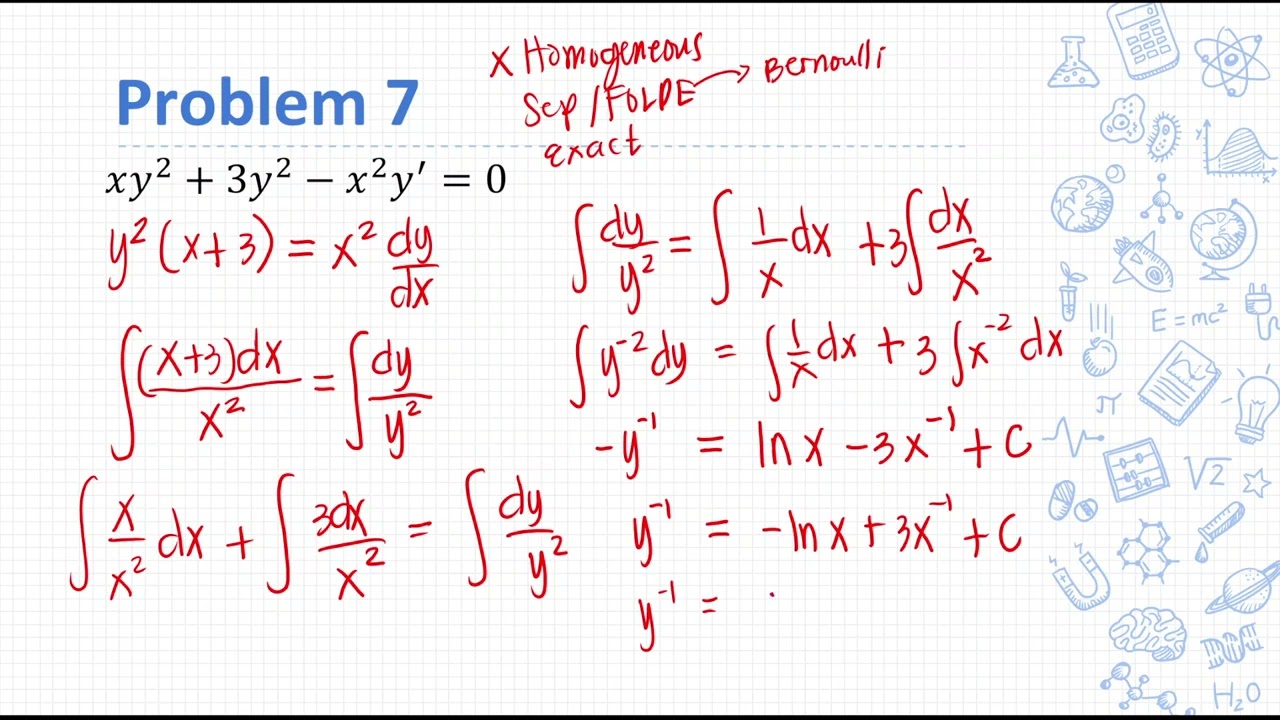 Problem 7
x Homogeneous
Sep / FOLDE → Bernoulli
exact
xy² + 3y² − x²y′ = 0
y² (x + 3) = x² dy/dx
∫ (x+3)dx / x² = ∫ dy / y²
∫ x/x² dx + ∫ 3dx/x² = ∫ dy/y²
∫ dy/y² = ∫ 1/x dx + 3∫ dx/x²
∫ y⁻² dy = ∫ 1/x dx + 3 ∫ x⁻² dx
-y⁻¹ = ln x − 3x⁻¹ + C
y⁻¹ = -ln x + 3x⁻¹ + C
y⁻¹ =
E = mc²
π
√2
H₂O
y
x